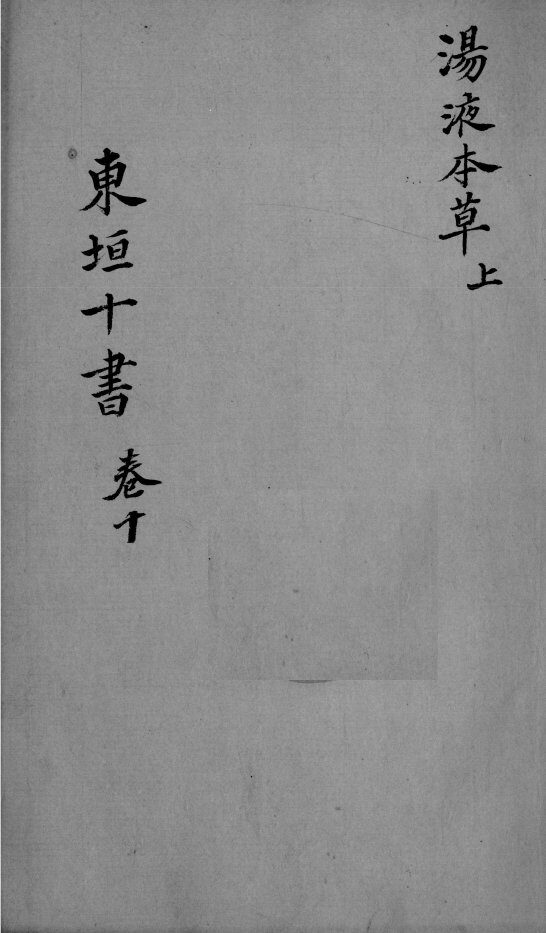 湯液本草上
東垣十書卷十